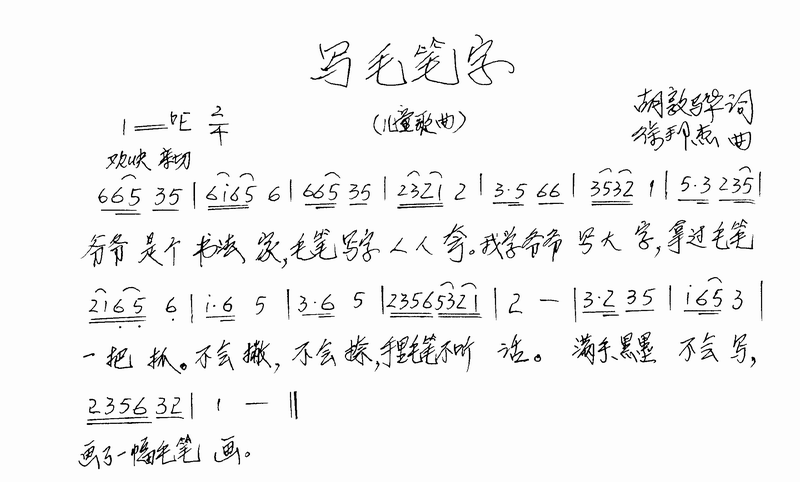 写毛笔字
胡敦骅词
1=bE 2/4 (儿童歌曲) 徐邦杰曲
欢快 亲切
665 35 | 6i65 6 | 665 35 | 2321 2 | 3·5 66 | 3532 1 | 5·3 235 |
爷爷 是个 书法 家,毛笔写字 人人 夸。我学爷爷 写大 字,拿过毛笔
2165 6 | i·6 5 | 3·6 5 | 23565321 | 2 — | 3·2 35 | i65 3 |
一把 抓。不会撇, 不会捺,手里毛笔不听 话。 满手黑墨 不会 写,
2356 32 | 1 — ‖
画了一幅毛笔 画。